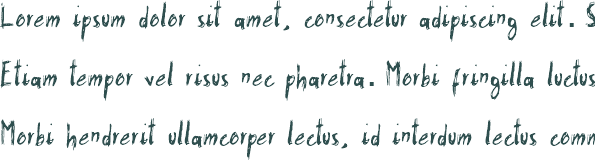 Lorem ipsum dolor sit amet, consectetur adipiscing elit. S
Etiam tempor vel risus nec pharetra. Morbi fringilla luctus
Morbi hendrerit ullamcorper lectus, id interdum lectus comm